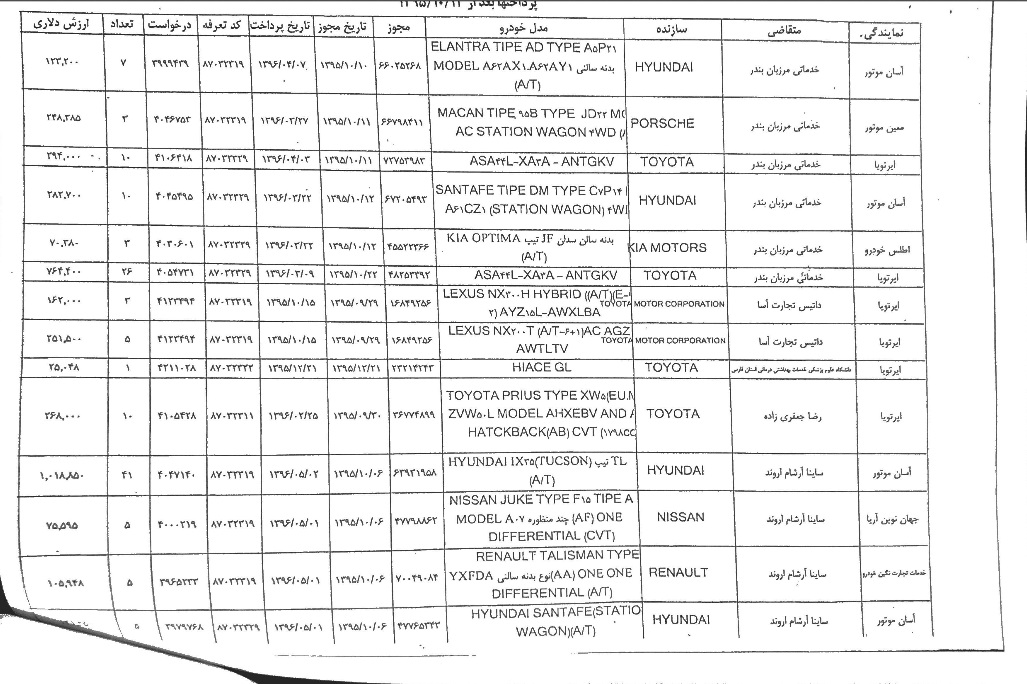 پرداختها بعد از ۱۳۹۵/۱۰/۱۲
نمایندگی متقاضی سازنده مدل خودرو مجوز تاریخ مجوز تاریخ پرداخت کد تعرفه درخواست تعداد ارزش دلاری
آسان موتور خدماتی مرزبان بندر HYUNDAI ELANTRA TIPE AD TYPE A۵P۲۱
بدنه سالنی MODEL A۶۲AX۱،A۶۲AY۱
(A/T) ۶۶۰۲۵۲۶۸ ۱۳۹۵/۱۰/۱۰ ۱۳۹۶/۰۴/۰۷ ۸۷۰۳۲۳۱۹ ۳۹۹۹۴۳۹ ۷ ۱۲۳,۲۰۰
معین موتور خدماتی مرزبان بندر PORSCHE MACAN TIPE ۹۵B TYPE JD۲۲ MO
AC STATION WAGON ۴WD (A ۶۶۷۹۸۴۱۱ ۱۳۹۵/۱۰/۱۱ ۱۳۹۶/۰۲/۲۷ ۸۷۰۳۲۳۱۹ ۴۰۴۶۷۵۲ ۳ ۲۴۸,۳۸۵
ایرتویا خدماتی مرزبان بندر TOYOTA ASA۴۴L-XA۳A - ANTGKV ۷۲۷۵۳۹۸۲ ۱۳۹۵/۱۰/۱۱ ۱۳۹۶/۰۴/۰۳ ۸۷۰۳۲۳۲۹ ۴۱۰۶۴۱۸ ۱۰ ۲۹۴,۰۰۰
آسان موتور خدماتی مرزبان بندر HYUNDAI SANTAFE TIPE DM TYPE C۷P۱۴
A۶۱CZ۱ (STATION WAGON) ۴WI ۶۷۲۰۵۴۹۲ ۱۳۹۵/۱۰/۱۲ ۱۳۹۶/۰۲/۲۲ ۸۷۰۳۲۳۲۹ ۴۰۴۵۴۹۵ ۱۰ ۲۸۲,۷۰۰
اطلس خودرو خدماتی مرزبان بندر KIA MOTORS بدنه سالن سدان JF تیپ KIA OPTIMA
(A/T) ۴۵۵۲۲۳۶۶ ۱۳۹۵/۱۰/۱۲ ۱۳۹۶/۰۲/۲۲ ۸۷۰۳۲۳۲۹ ۴۰۳۰۶۰۱ ۳ ۷۰,۳۸۰
ایرتویا خدماتی مرزبان بندر TOYOTA ASA۴۴L-XA۳A - ANTGKV ۴۸۲۵۳۴۹۲ ۱۳۹۵/۱۰/۲۲ ۱۳۹۶/۰۳/۰۹ ۸۷۰۳۲۳۲۹ ۴۰۵۴۷۳۱ ۲۶ ۷۶۴,۴۰۰
ایرتویا داتیس تجارت آسا TOYOTA MOTOR CORPORATION LEXUS NX۳۰۰H HYBRID ((A/T)(E-
۲) AYZ۱۵L-AWXLBA ۱۶۸۴۹۲۵۶ ۱۳۹۵/۰۹/۲۹ ۱۳۹۵/۱۰/۱۵ ۸۷۰۳۲۳۱۹ ۴۱۲۳۴۹۴ ۳ ۱۶۲,۰۰۰
ایرتویا داتیس تجارت آسا TOYOTA MOTOR CORPORATION LEXUS NX۲۰۰T (A/T-۶+۱)AC AGZ
AWTLTV ۱۶۸۴۹۲۵۶ ۱۳۹۵/۰۹/۲۹ ۱۳۹۵/۱۰/۱۵ ۸۷۰۳۲۳۱۹ ۴۱۲۳۴۹۴ ۵ ۲۵۱,۵۰۰
ایرتویا دانشگاه علوم پزشکی خدمات بهداشتی درمانی استان فارس TOYOTA HIACE GL ۲۳۲۱۴۲۴۳ ۱۳۹۵/۱۲/۲۱ ۱۳۹۵/۱۲/۲۱ ۸۷۰۳۲۳۲۲ ۴۲۱۱۰۲۸ ۱ ۲۵,۰۴۸
ایرتویا رضا جعفری زاده TOYOTA TOYOTA PRIUS TYPE XW۵(EU.M
ZVW۵۰L MODEL AHXEBV AND A
HATCKBACK(AB) CVT (۱۷۹۸CC ۳۶۷۷۴۸۹۹ ۱۳۹۵/۰۹/۳۰ ۱۳۹۶/۰۲/۲۵ ۸۷۰۳۲۳۱۱ ۴۱۰۵۴۲۸ ۱۰ ۲۶۸,۰۰۰
آسان موتور ساینا آرشام اروند HYUNDAI HYUNDAI IX۳۵(TUCSON) تیپ TL
(A/T) ۶۳۹۳۱۹۵۸ ۱۳۹۵/۱۰/۰۶ ۱۳۹۶/۰۵/۰۲ ۸۷۰۳۲۳۱۹ ۴۰۴۷۱۴۰ ۴۱ ۱,۰۱۸,۸۵۰
جهان نوین آریا ساینا آرشام اروند NISSAN NISSAN JUKE TYPE F۱۵ TIPE A
MODEL A۰۷ چند منظوره (AF) ONE
DIFFERENTIAL (CVT) ۴۷۷۹۸۸۶۲ ۱۳۹۵/۱۰/۰۶ ۱۳۹۶/۰۵/۰۱ ۸۷۰۳۲۳۱۹ ۴۰۰۰۲۱۹ ۵ ۷۵,۵۹۵
خدمات تجارت نگین خودرو ساینا آرشام اروند RENAULT RENAULT TALISMAN TYPE
YXFDA نوع بدنه سالنی(AA) ONE ONE
DIFFERENTIAL (A/T) ۷۰۰۴۹۰۸۴ ۱۳۹۵/۱۰/۰۶ ۱۳۹۶/۰۵/۰۱ ۸۷۰۳۲۳۱۹ ۳۹۶۵۲۳۲ ۵ ۱۰۵,۹۴۸
آسان موتور ساینا آرشام اروند HYUNDAI HYUNDAI SANTAFE(STATIO
WAGON)(A/T) ۴۷۷۶۵۳۴۳ ۱۳۹۵/۱۰/۰۶ ۱۳۹۶/۰۵/۰۱ ۸۷۰۳۲۳۲۹ ۳۹۷۹۷۶۸ ۵